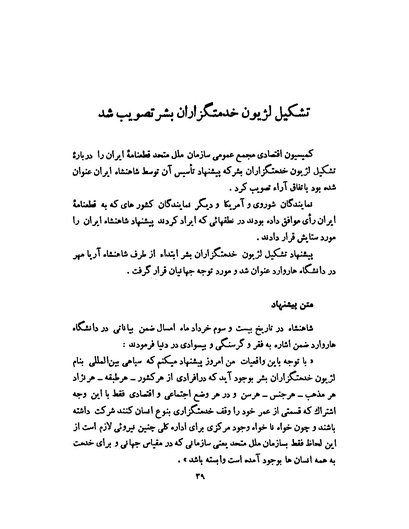 تشکیل لژیون خدمتگزاران بشر تصویب شد
کمیسیون اقتصادی مجمع عمومی سازمان ملل متحد قطعنامهٔ ایران را دربارهٔ
تشکیل لژیون خدمتگزاران بشرکه پیشنهاد تأسیس آن توسط شاهنشاه ایران عنوان
شده بود باتفاق آراء تصویب کرد .
نمایندگان شوروی و آمریکا و دیگر نمایندگان کشور های که به قطعنامهٔ
ایران رأی موافق داده بودند در نطقهائی که ایراد کردند پیشنهاد شاهنشاه ایران را
مورد ستایش قرار دادند .
پیشنهاد تشکیل لژیون خدمتگزاران بشر ابتداء از طرف شاهنشاه آریا مهر
در دانشگاه هاروارد عنوان شد و مورد توجه جهانیان قرار گرفت .
متن پیشنهاد
شاهنشاه در تاریخ بیست و سوم خرداد ماه امسال ضمن بیاناتی در دانشگاه
هاروارد ضمن اشاره به فقر و گرسنگی و بیسوادی در دنیا فرمودند :
« با توجه باین واقعیات من امروز پیشنهاد میکنم که سپاهی بین‌المللی بنام
لژیون خدمتگزاران بشر بوجود آید که درافرادی از هرکشور ـ هرطبقه ـ هر نژاد
هر مذهب ـ هرجنس ـ هرسن و در هر وضع اجتماعی و اقتصادی فقط با این وجه
اشتراك که قسمتی از عمر خود را وقف خدمتگزاری بنوع انسان کنند شرکت داشته
باشند و چون خواه نا خواه وجود مرکزی برای اداره کلی چنین نیروئی لازم است از
این لحاظ فقط بسازمان ملل متحد یعنی سازمانی که در مقیاس جهانی و برای خدمت
به همه انسان ها بوجود آمده است وابسته باشد » .
۳۹